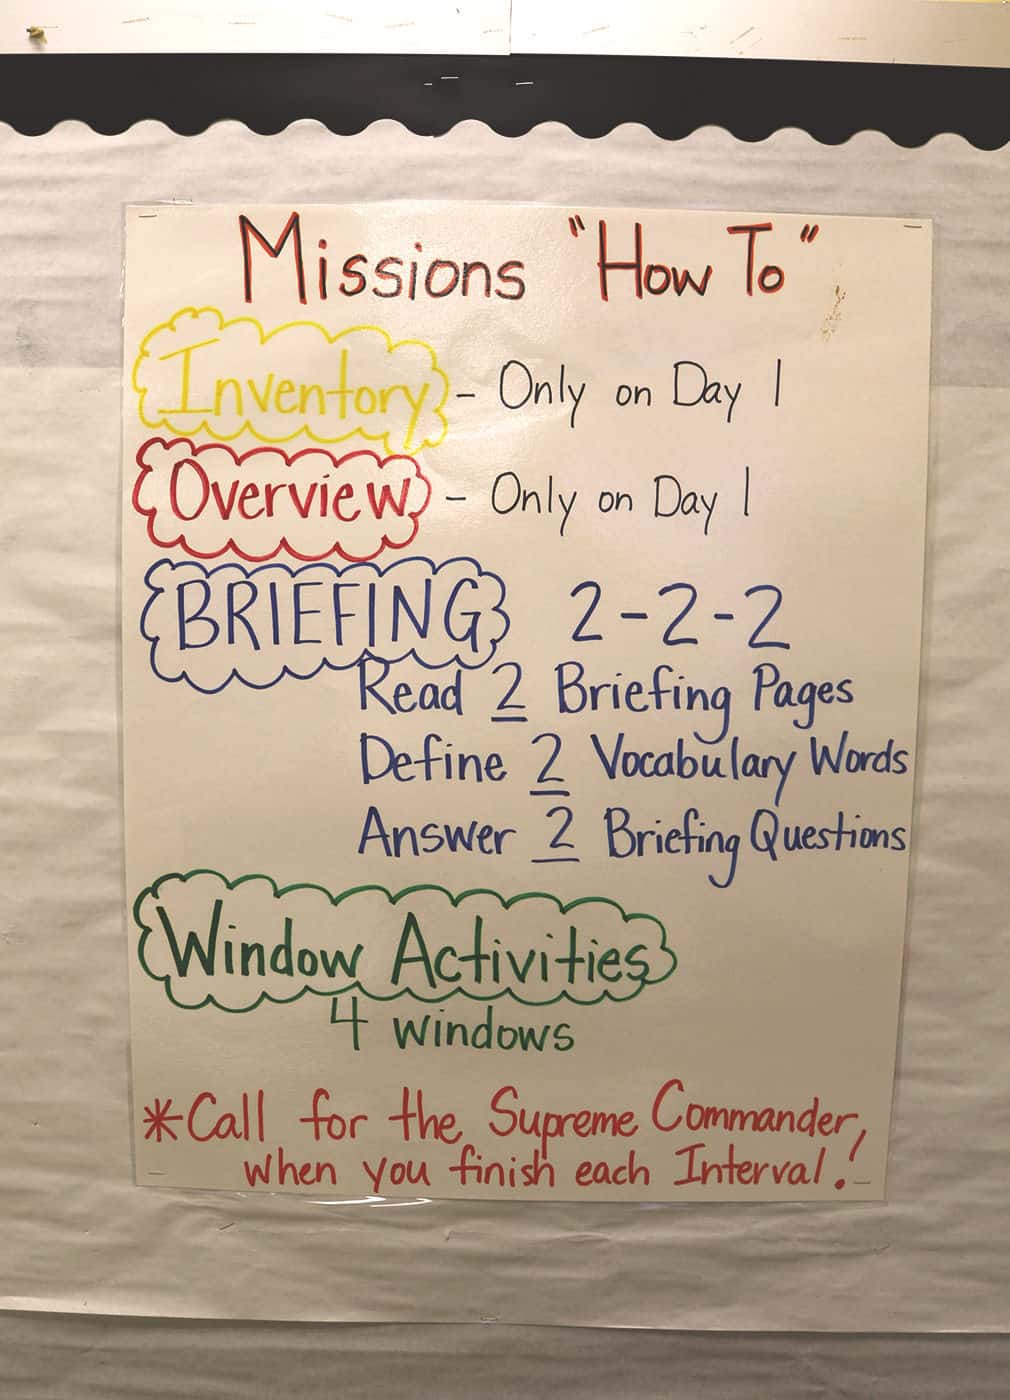 Missions "How To"
Inventory - Only on Day 1
Overview - Only on Day 1
BRIEFING 2-2-2
Read 2 Briefing Pages
Define 2 Vocabulary Words
Answer 2 Briefing Questions
Window Activities
4 windows
*Call for the Supreme Commander,
when you finish each Interval!